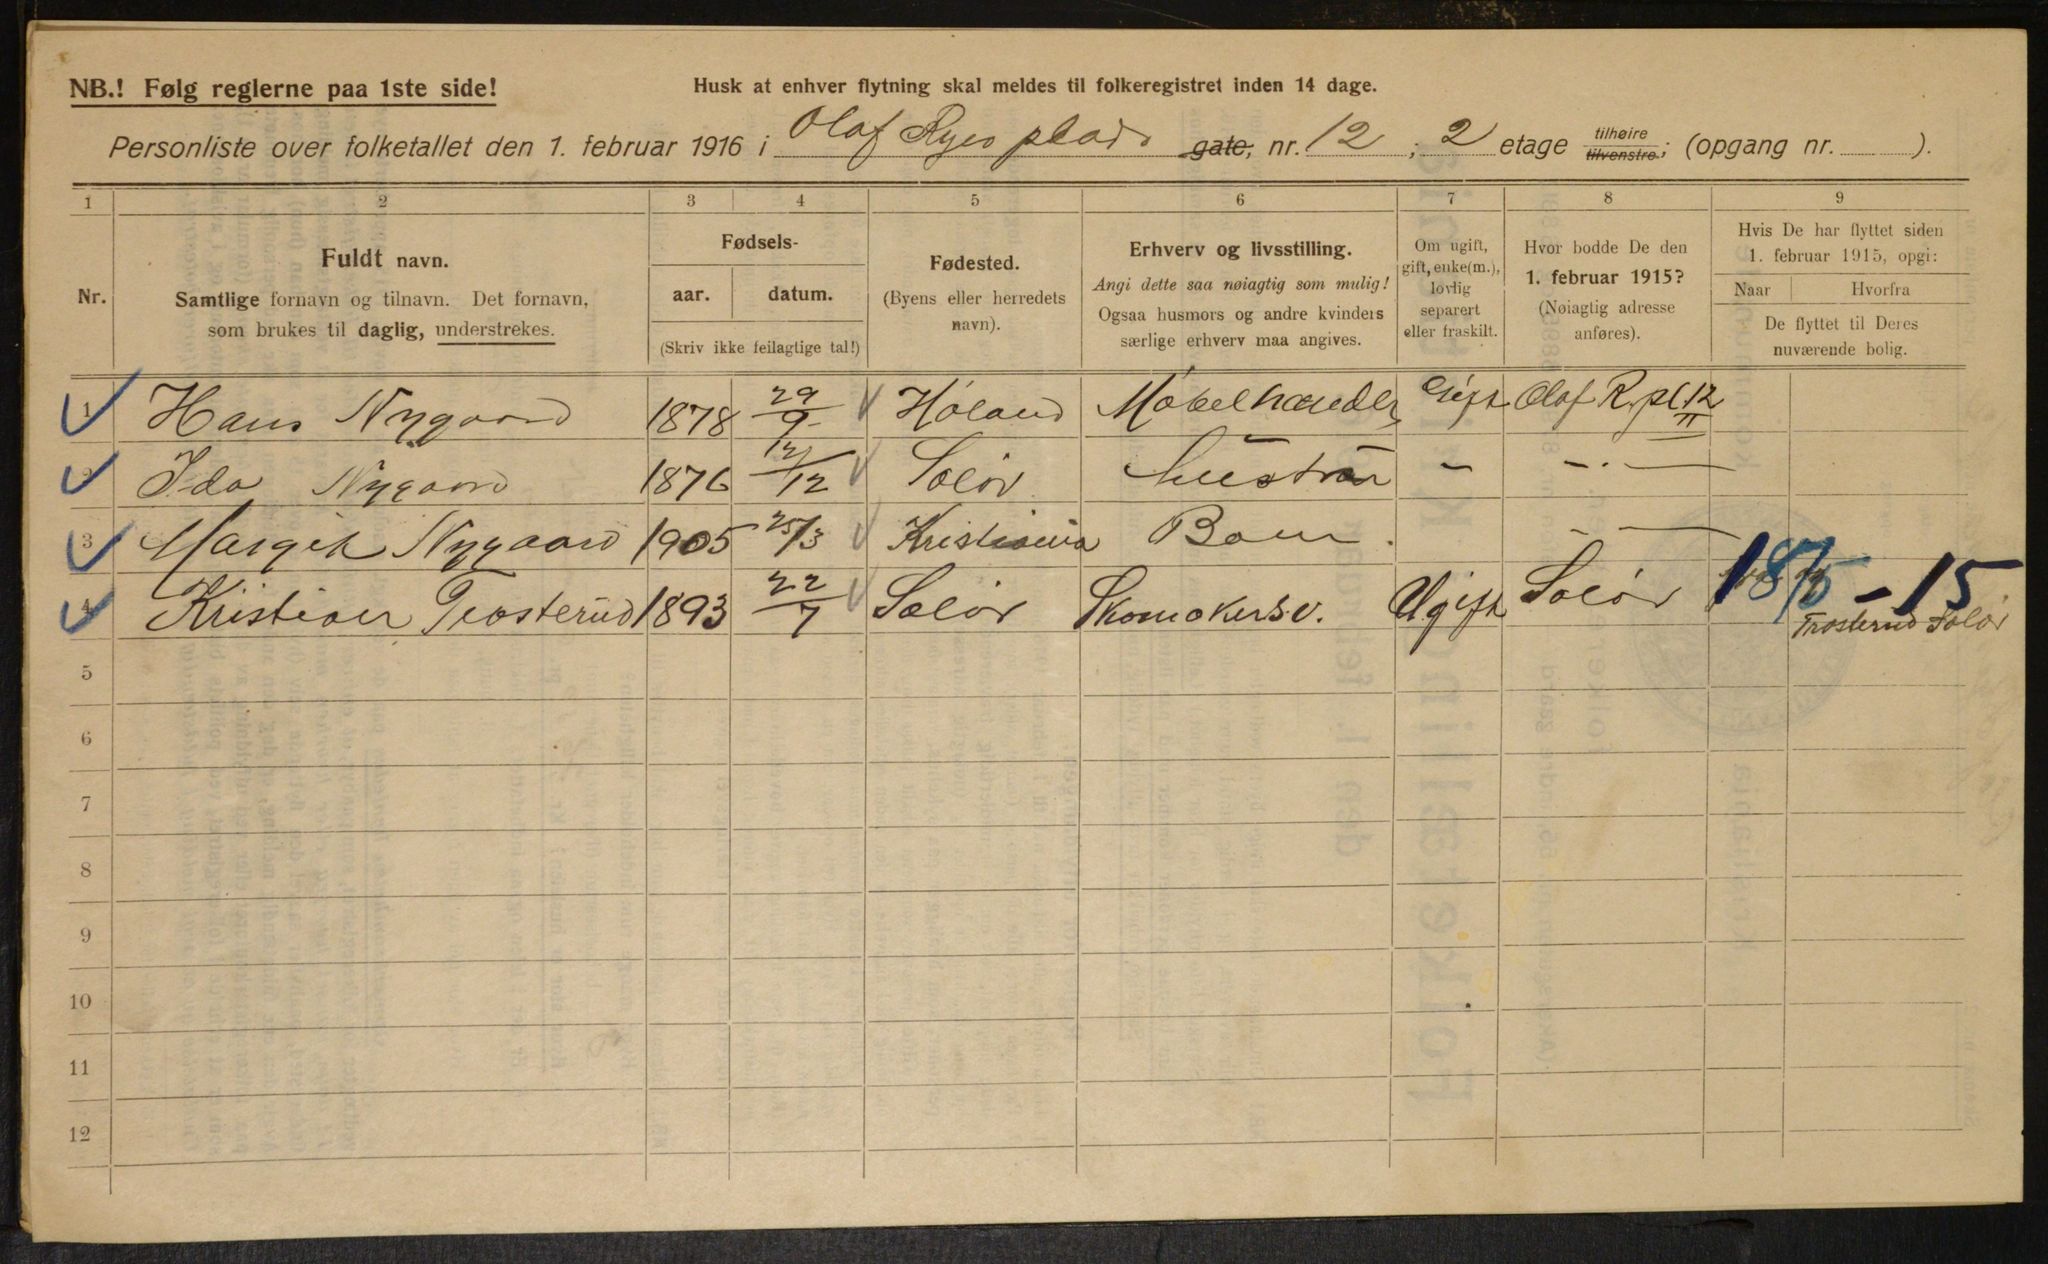 NB.! Følg reglerne paa 1ste side!
Husk at enhver flytning skal meldes til folkeregistret inden 14 dage.
Personliste over folketallet den 1. februar 1916 i Olaf Ryes plads gate, nr. 12 ; 2 etage tilhøire tilvenstre; (opgang nr. ).
1 2 3 4 5 6 7 8 9
Nr.
Fuldt navn.
Samtlige fornavn og tilnavn. Det fornavn,
som brukes til daglig, understrekes.
Fødsels-
aar. datum.
(Skriv ikke feilagtige tal!)
Fødested.
(Byens eller herredets
navn).
Erhverv og livsstilling.
Angi dette saa nøiagtig som mulig!
Ogsaa husmors og andre kvinders
særlige erhverv maa angives.
Om ugift,
gift, enke(m.),
lovlig
separert
eller fraskilt.
Hvor bodde De den
1. februar 1915?
(Nøiagtig adresse
anføres).
Hvis De har flyttet siden
1. februar 1915, opgi:
Naar Hvorfra
De flyttet til Deres
nuværende bolig.
1 Hans Nygaard 1878 29/9 Høland Møbelhandler Gift Olaf R. pl. 12 II
2 Ida Nygaard 1876 12/12 Solør Hustru - -.-
3 Margit Nygaard 1905 25/3 Kristiania Barn. - -
4 Kristian Trosterud 1893 22/7 Solør Skomakersv. Ugift Solør 18/5 - 15 Trosterud Solør
5
6
7
8
9
10
11
12